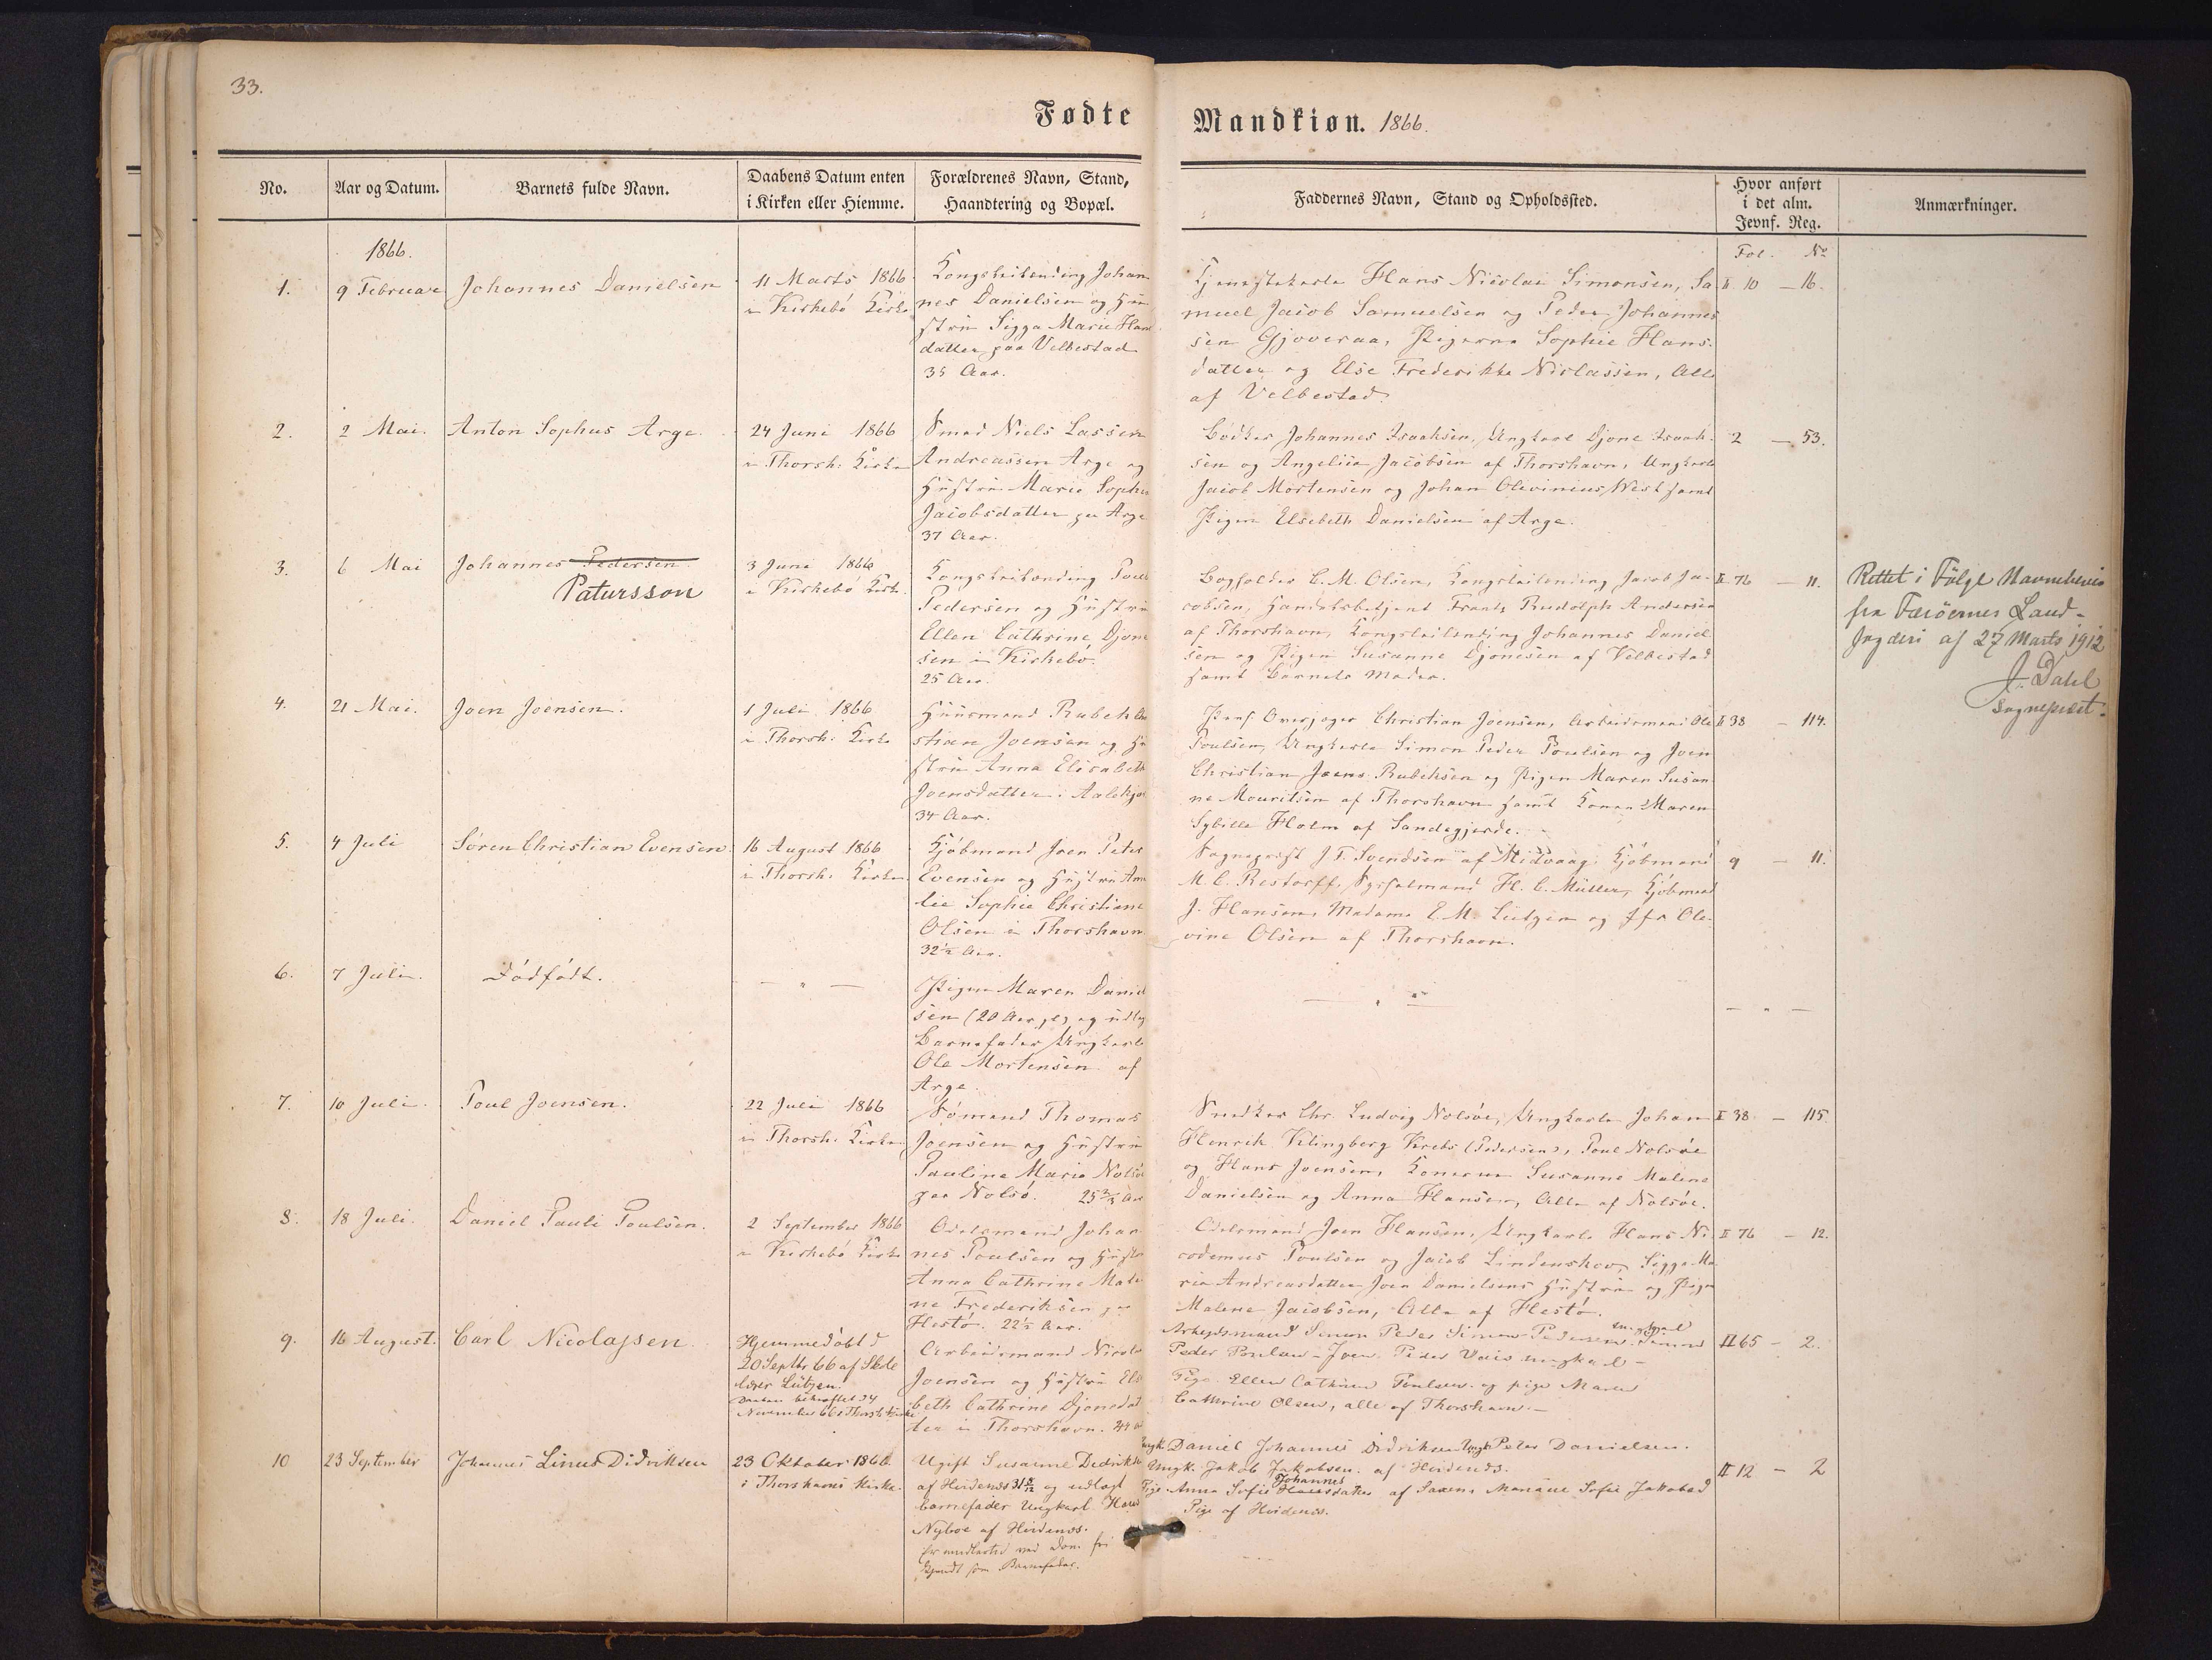 33.
Fødte
Mandkiøn. 1866.
No.
Aar og Datum.
Barnets fulde Navn.
Daabens Datum enten
i Kirken eller Hiemme.
Forældrenes Navn, Stand,
Haandtering og Bopæl.
Faddernes Navn, Stand og Opholdssted.
Hvor anført
i det alm.
Jevnf. Reg.
Anmærkninger.
1866.
Fol. No
1.
9 Februar
Johannes Danielsen
11 Marts 1866
i Kirkebö Kirke
Kongsleilending Johan
nes Danielsen og Hu
stru Sigga Marie Hans
datter paa Velbestad
35 Aar.
Tjenestekarle Hans Nicolai Simonsen, Sa
muel Jacob Samuelsen og Peder Johannes
sen Gjoveraa, Pigerne Sophie Hans-
datter og Else Frederikke Niclassen, Alle
af Velbestad.
II 10 – 16.
2.
2 Mai.
Anton Sophus Arge.
24 Juni 1866
i Thorsh. Kirke
Smed Niels Lassen
Andreassen Arge og
Hustru Marie Sophie
Jacobsdatter paa Arge
37 Aar.
Bödker Johannes Isaaksen, Ungkarl Djone Isaak-
sen og Angelica Jacobsen af Thorshavn, Ungkarle
Jacob Mortensen og Johan Olevinius West samt
Pigen Elsebeth Danielsen af Arge.
2 – 53.
3.
6 Mai
Johannes Pedersen
Patursson
3 Juni 1866
i Kirkebö Kirke.
Kongsleilending Poul
Pedersen og Hustru
Ellen Cathrine Djone
sen i Kirkebö.
25 Aar.
Bogholder C. M. Olsen, Kongsleilending Jacob Ja-
cobsen, Handelsbetjent Frants Rudolph Andersen
af Thorshavn, Kongsleilending Johannes Daniel
sen og Pigen Susanne Djonesen af Velbestad
samt Barnets Moder.
II 76 – 11.
Rettet i Fölge Navnebevis
fra Færöernes Land-
fogderi af 27 Marts 1912
J. Dahl
Sognepræst.
4.
21 Mai.
Joen Joensen.
1 Juli 1866
i Thorsh. Kirke
Huusmand Rubek
stian Joensen og Hu
stru Anna Elisabeth
Joensdatter i
34 Aar.
Pens. Overjæger Christian Joensen, Arbeidsmand Ole
Poulsen, Ungkarle Simon Peder Poulsen og Joen
Christian Joens Rubeksen og Pigen Maren Susan
ne Mouritsen af Thorshavn samt Konen Maren
Sybille Holm af Sandegjerde.
II 38 – 114.
5.
4 Juli
Sören Christian Evensen.
16 August 1866
i Thorsh. Kirke.
Kjöbmand Joen Peter
Evensen og Hustru Ama
lie Sophie Christiane
Olsen i Thorshavn
32½ Aar.
Sognepræst J. T. Svendsen af Midvaag, Kjöbmand
M. C. Restorff, Sysselmand H. C. Müller, Kjöbmand
J. Hansen, Madame E. M. Lützen og Jfr Ole-
vine Olsen af Thorshavn.
9 – 11.
6.
7 Juli.
Dödfödt.
– " –
Pigen Maren Daniel
sen (20 Aar gl) og udlagt
Barnefader Ungkarl
Ole Mortensen af
Arge.
– " –
– " –
7.
10 Juli.
Poul Joensen.
22 Juli 1866
i Thorsh. Kirke.
Sömand Thomas
Joensen og Hustru
Pauline Marie Nolsöe
paa Nolsö. 25 Aar
Snedker Chr. Ludvig Nolsöe, Ungkarle Johan
Henrik Klingberg Krebs (Pedersen), Poul Nolsöe
og Hans Joensen, Konerne Susanne Malene
Danielsen og Anna Hansen, Alle af Nolsöe.
II 38 – 115.
8.
18 Juli.
Daniel Pauli Poulsen.
2 September 1866
i Kirkebö Kirke
Odelsmand Johan
nes Poulsen og Hustru
Anna Cathrine Male
ne Frederiksen paa
Hestö. 22½ Aar.
Odelsmand Joen Hansen, Ungkarle Hans Ni
codemus Poulsen og Jacob Lindenskov, Sigga Ma
ria Andreasdatter Joen Danielsens Hustru og Pigen
Malene Jacobsen, Alle af Hestö.
II 76 – 12.
9.
16 August.
Carl Nicolajsen.
Hjemmedöbt d
20 Septbr 66 af Skole
lærer Lützen.
Daaben bekræftet 24
November 66 i Thorsh. Kirke
Arbeidsmand Nicolai
Joensen og Hustru Else
beth Cathrine Djonedat
ter i Thorshavn. 44
Arbejdsmand Simon Peder Simon Pedersen
Peder Poulsen – Joen Peder Vais ungkarl –
Pige Ellen Cathrine Poulsen og pige Maren
Cathrine Olsen, alle af Thorshavn. –
II 65 – 2.
10
23 September
Johannes Linus Didriksen
23 Oktober 1866
i Thorshavns Kirke.
Ugift Susanne Didriksen
af Hvidenæs 31 og udlagt
barnefader Ungkarl Hans
Nyboe af Hvidenæs.
Er imidlertid ved Dom fri
kjendt som Barnefader.
Ungk. Daniel Johannes Didriksen Ungk Peter Danielsen.
Ungk. Jakob Jakobsen af Hvidenæs.
Johannes
Pige Anna Sofie Hansdatter af Saxen, Mariane Sofie Jakobsd
Pige af Hvidenæs.
II 12 – 2